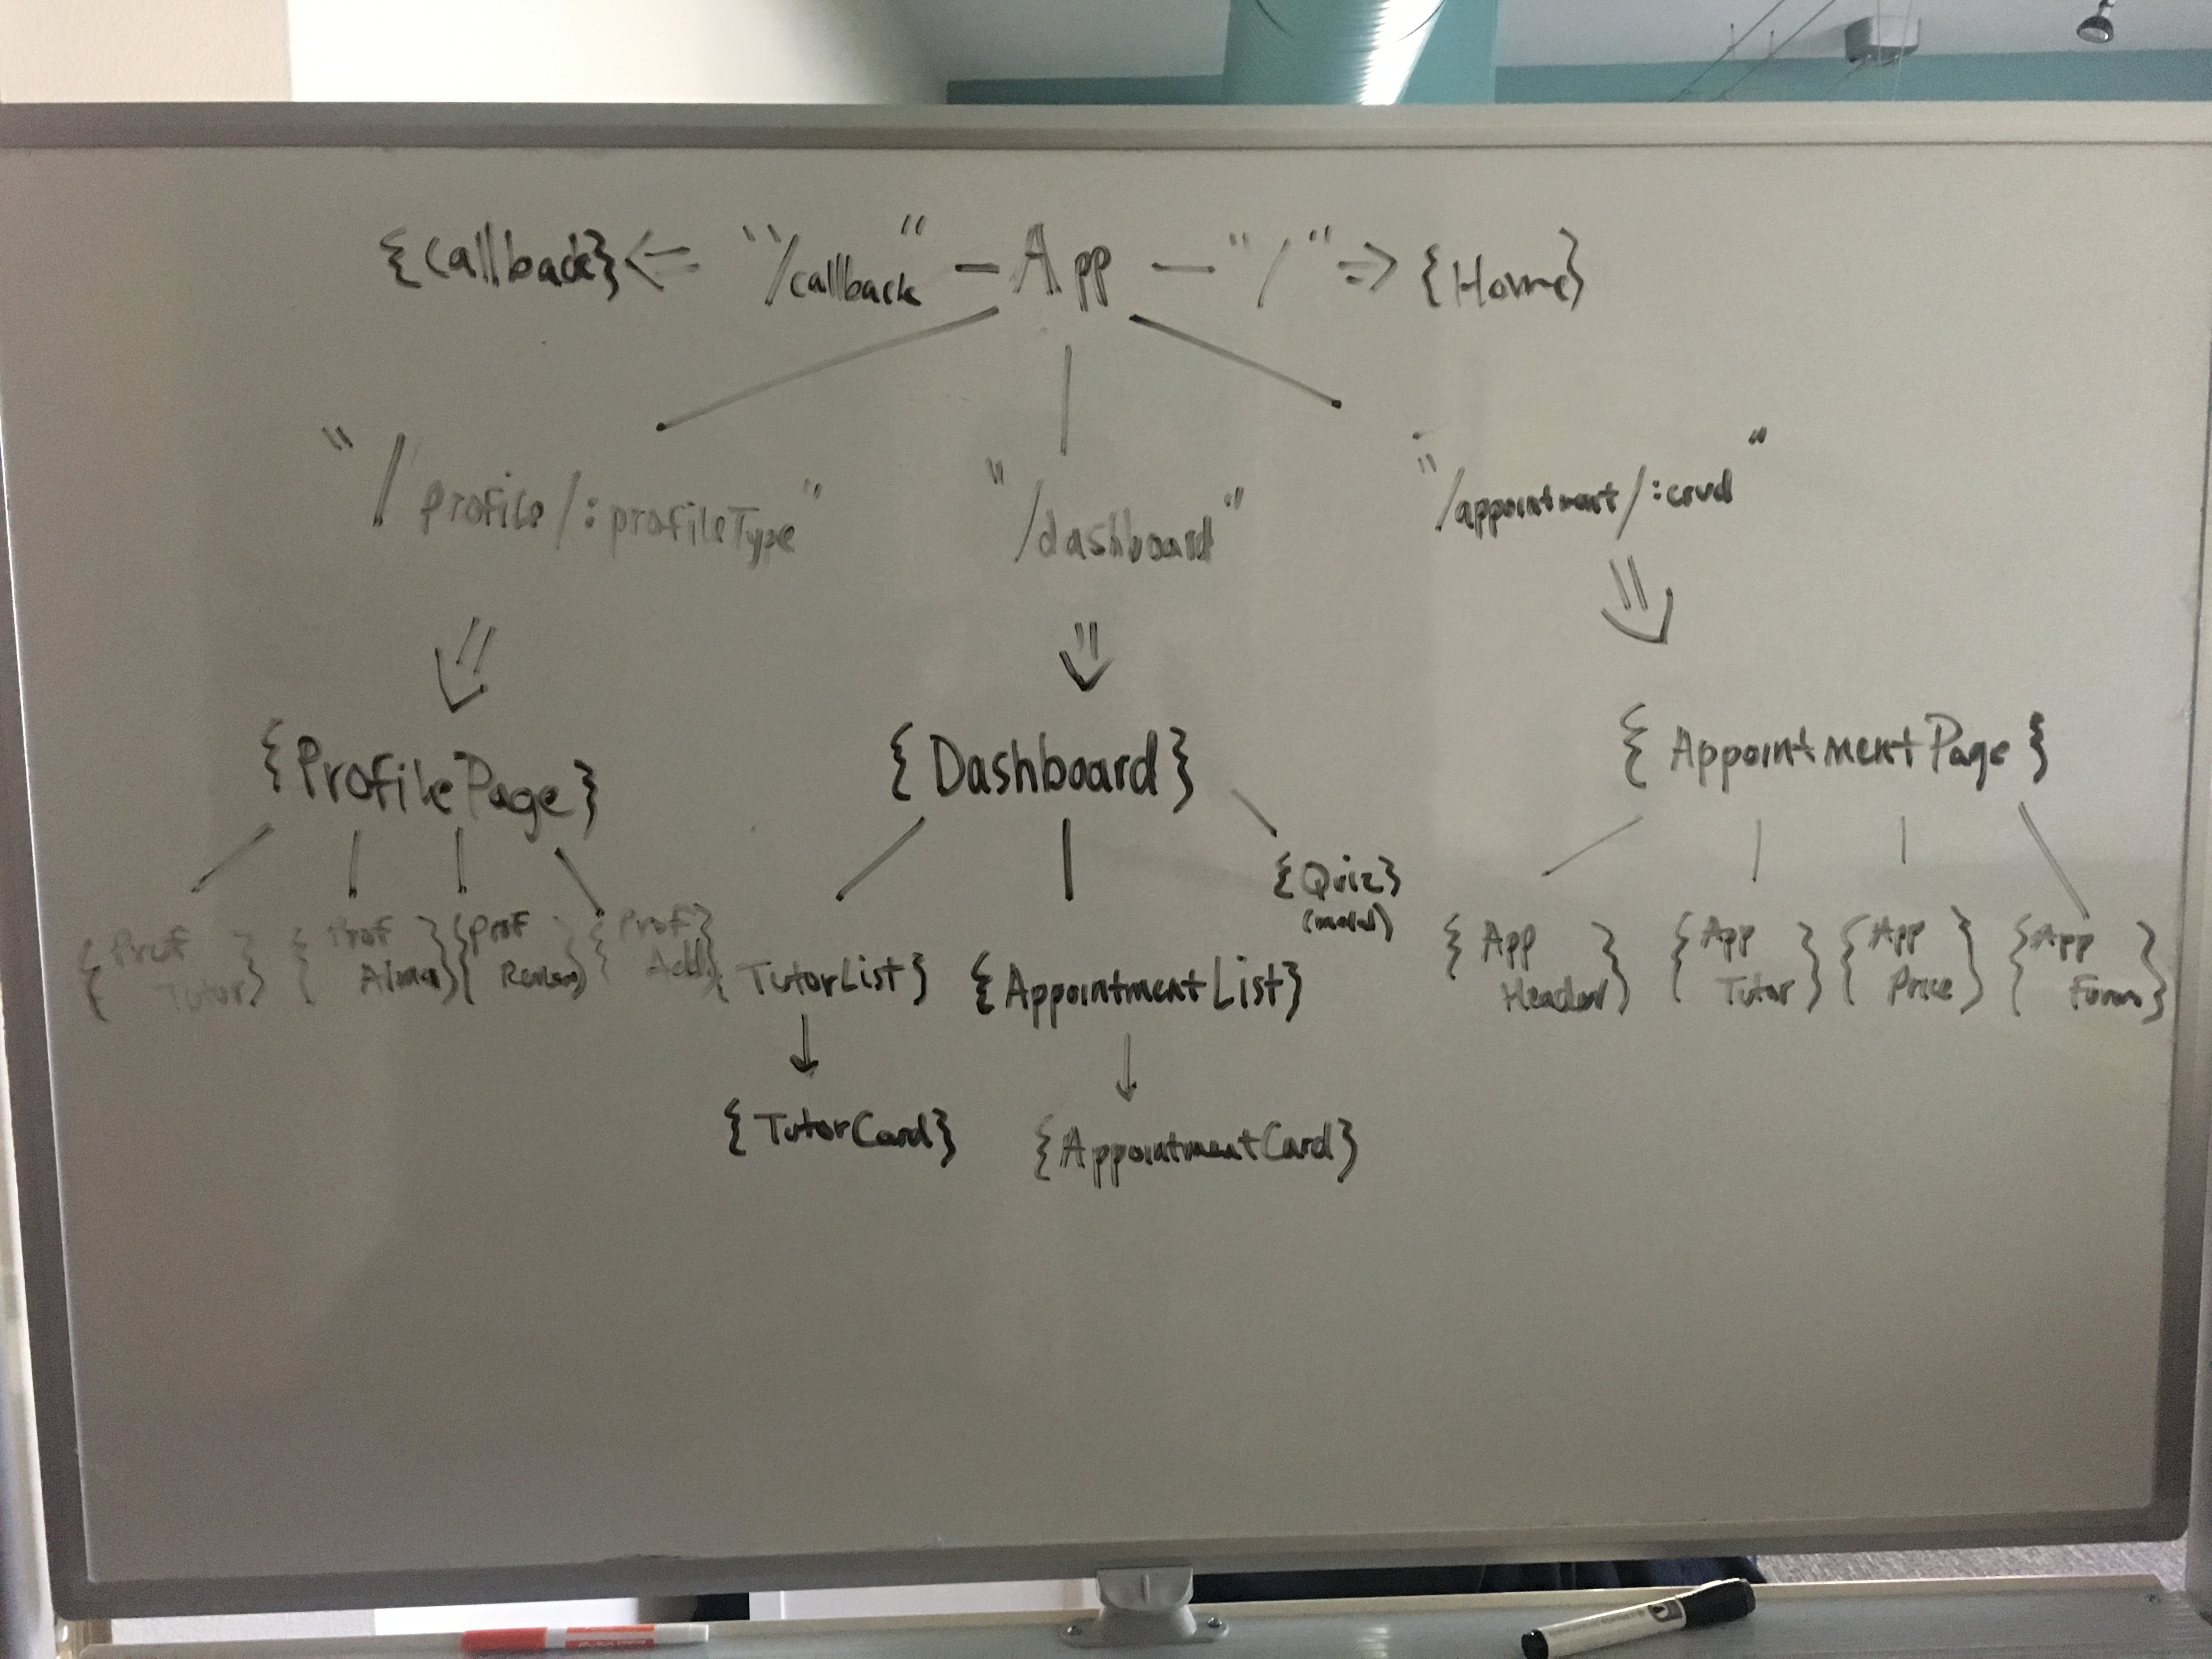 {Callback} <= "/callback" - App - "/" => {Home}
"/profile/:profileType"
"/dashboard"
"/appointment/:crud"
{ProfilePage}
{Dashboard}
{AppointmentPage}
{Prof Tutor}
{Prof
{Prof
{Prof
{Quiz}
(modal)
TutorList}
{AppointmentList}
{App Header}
{App Tutor}
{App Price}
{App Form}
{TutorCard}
{AppointmentCard}